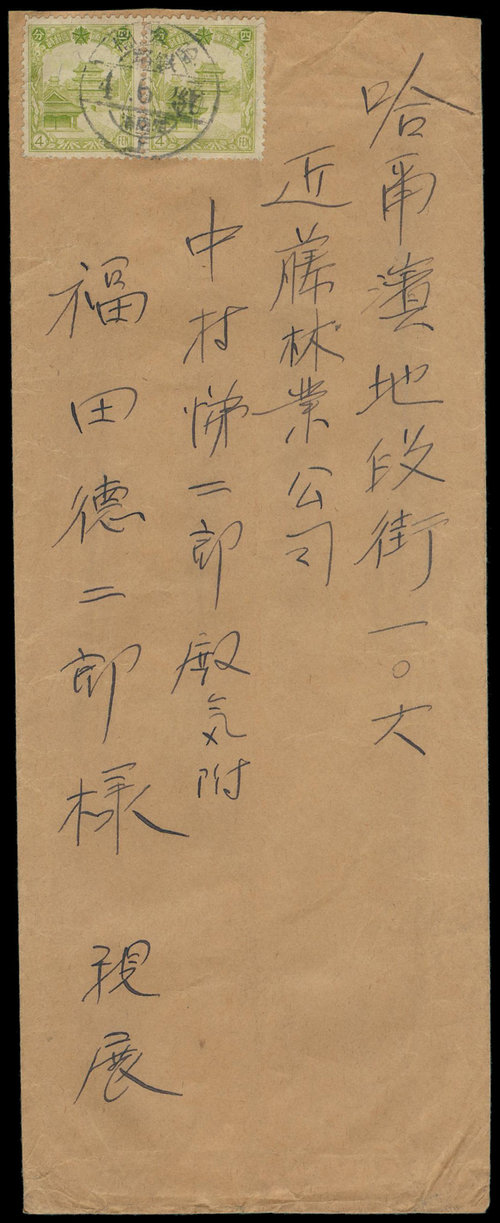 哈爾濱地段街一〇六
近藤林業公司
中村悌二郎殿気附
福田德二郎様
親展
四分
4 FEN
4 FEN
4. 6